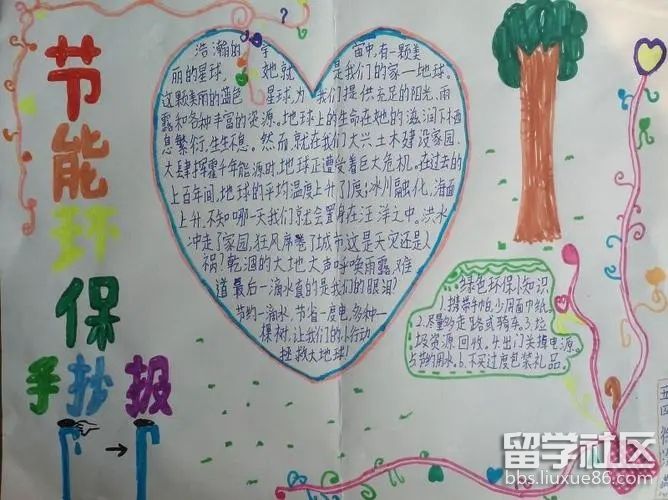 节能环保
手抄报
浩瀚的宇宙中,有一颗美
丽的星球,她就是我们的家—地球。
这颗美丽的蓝色星球,为我们提供充足的阳光、雨
露和各种丰富的资源,地球上的生命在她的滋润下栖
息繁衍,生生不息。然而,就在我们大兴土木建设家园,
大肆挥霍千年能源时,地球正遭受着巨大危机。在过去的
上百年间,地球的平均温度上升了1度;冰川融化,海面
上升,不知哪一天我们就会置身在汪洋之中。洪水
冲走了家园,狂风席卷了城市这是天灾还是人
祸?乾涸的大地大声呼唤雨露,难
道最后一滴水真的是我们的眼泪?
节约一滴水,节省一度电,多种一
棵树,让我们的小行动
拯救大地球!
绿色环保小知识
1.携带手帕,少用面巾纸。
2.尽量的走路或骑车.3.垃
圾资源回收。4.出门关掉电源。
5.节约用水。6.不买过度包装礼品。
五
留学社区
bbs.liuxue86.com